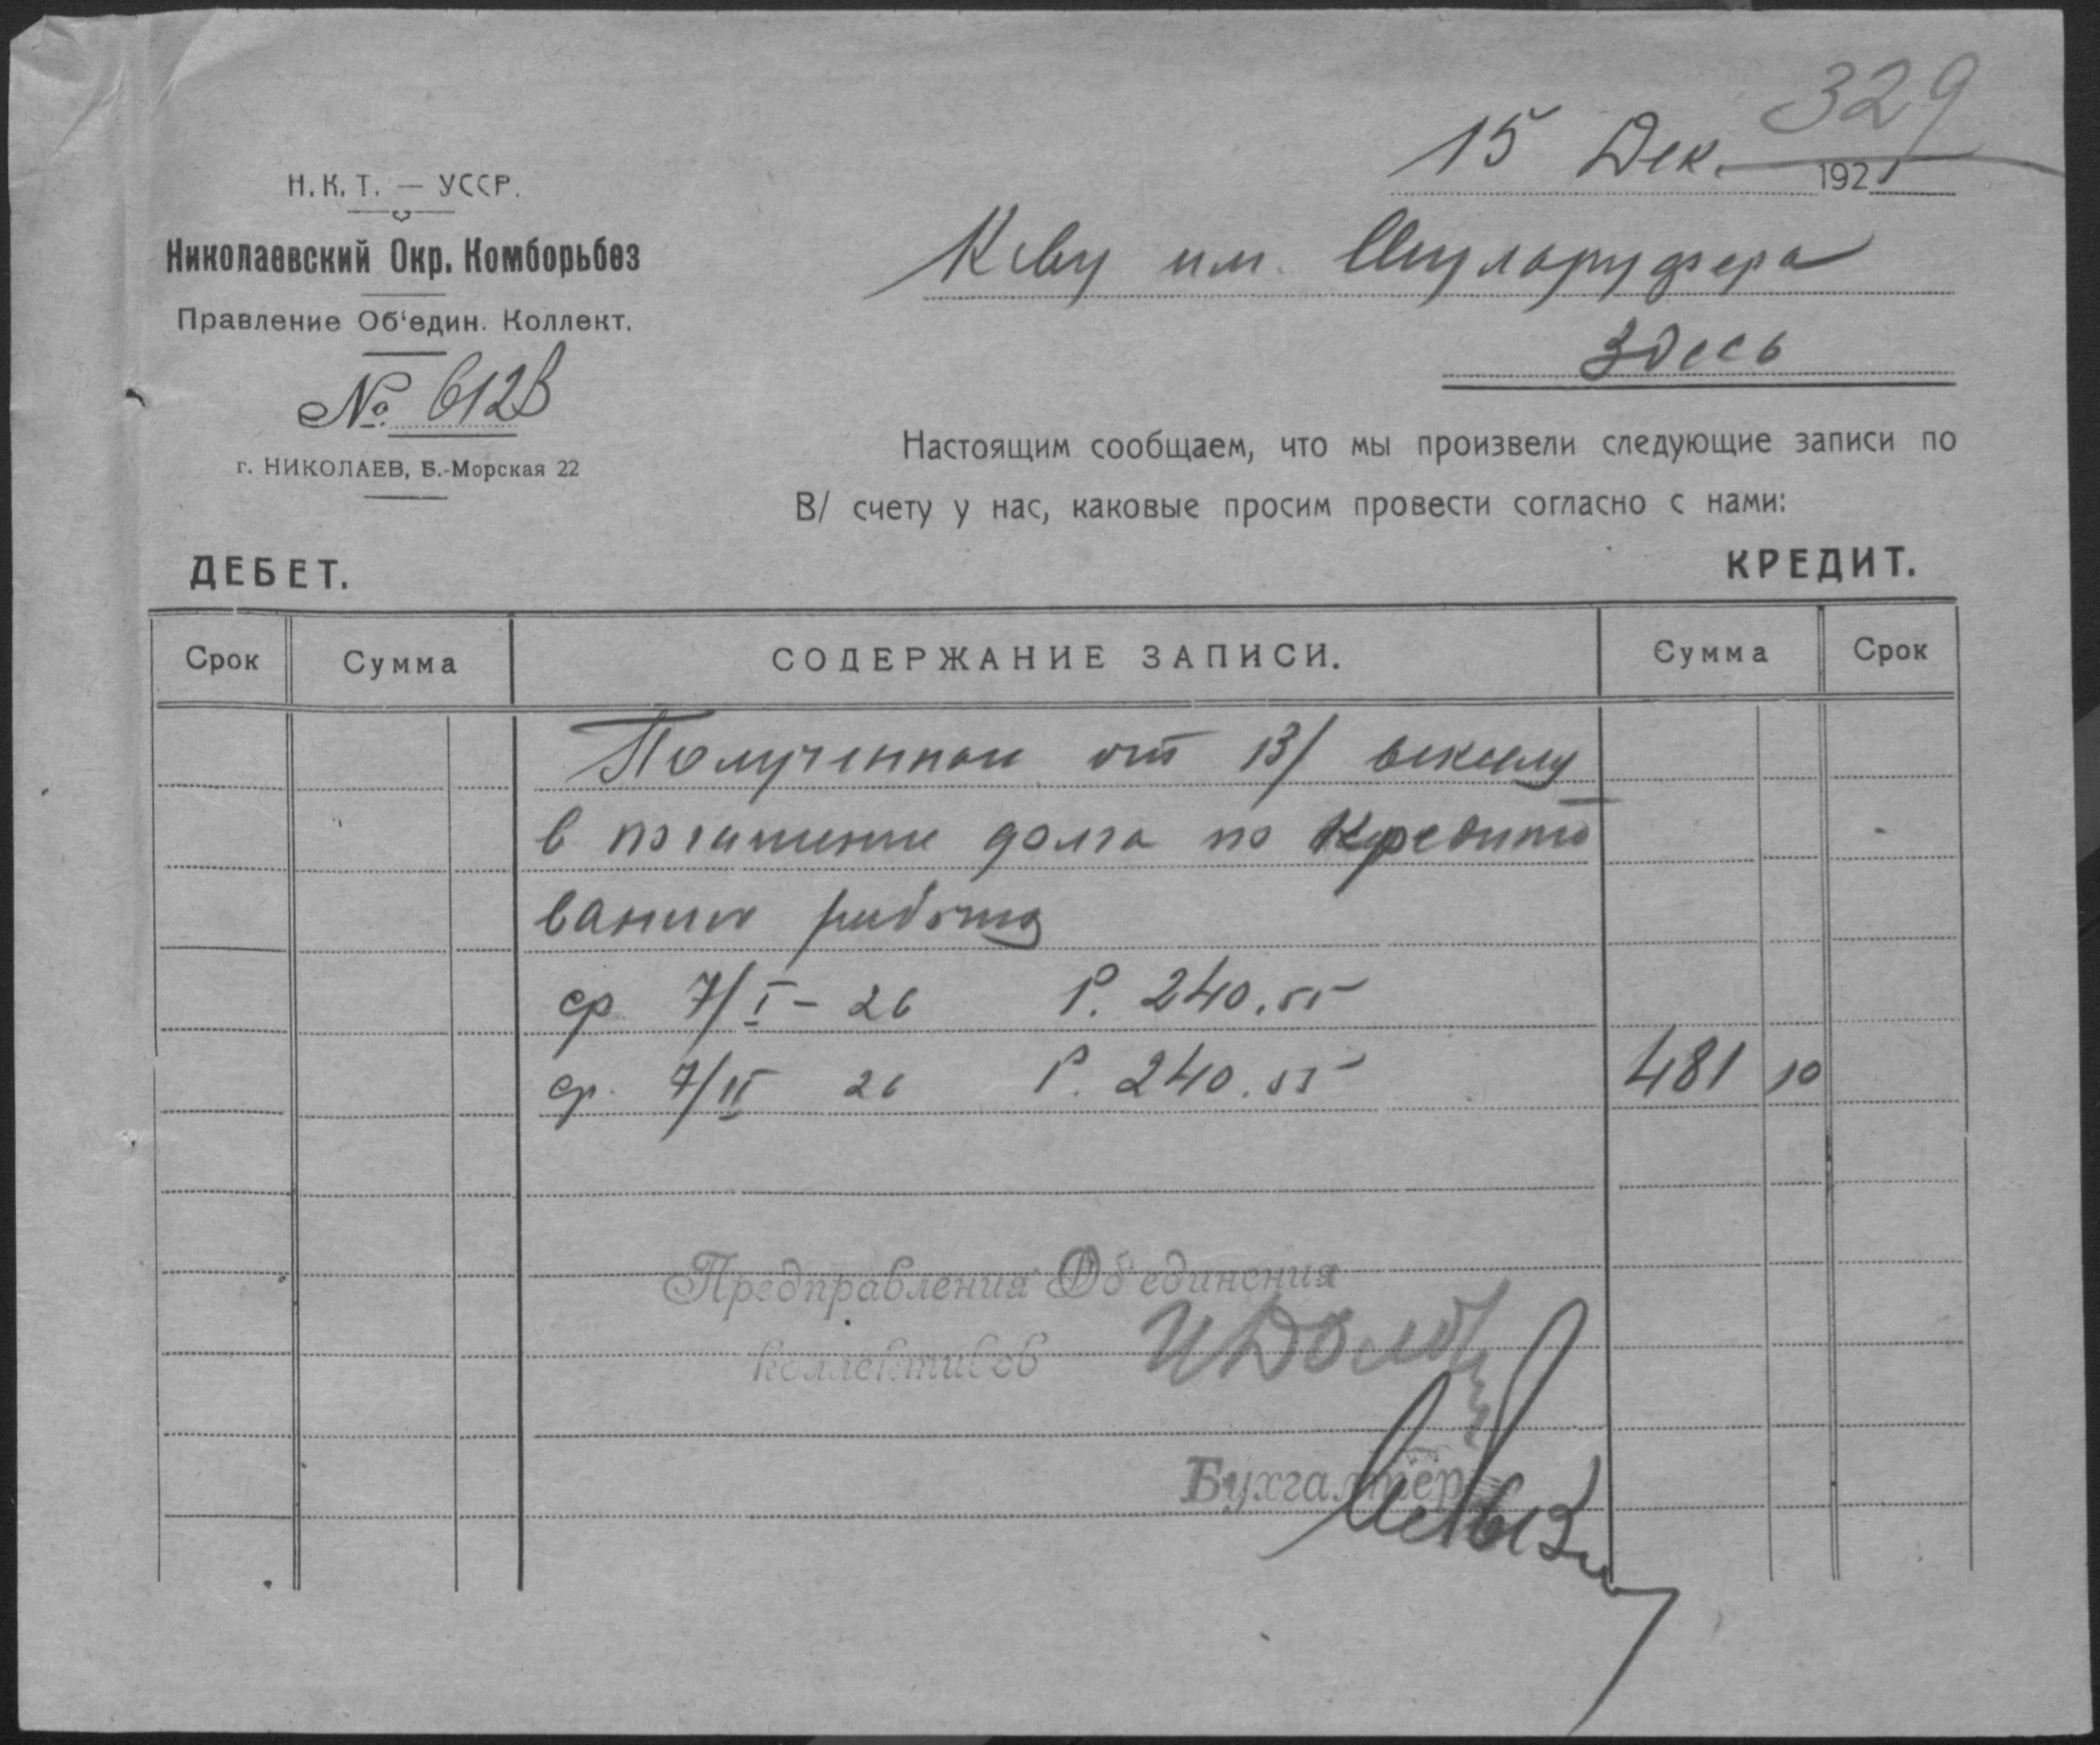 329
15 Дек. 1925
Н. К. Т. — УССР.
Николаевский Окр. Комборьбез
Правление Об‘един. Коллект.
№ 6128
г. НИКОЛАЕВ, Б.-Морская 22
К-ву им.
Здесь
Настоящим сообщаем, что мы произвели следующие записи по
В/ счету у нас, каковые просим провести согласно с нами:
ДЕБЕТ. КРЕДИТ.
Срок Сумма СОДЕРЖАНИЕ ЗАПИСИ. Сумма Срок
от В/
в погашение долга по Кредито
вании
ср. 7/I – 26 Р. 240.55
ср. 7/II 26 Р. 240.55 481 10
Предправления Об‘единения
коллективов
Бухгалтер